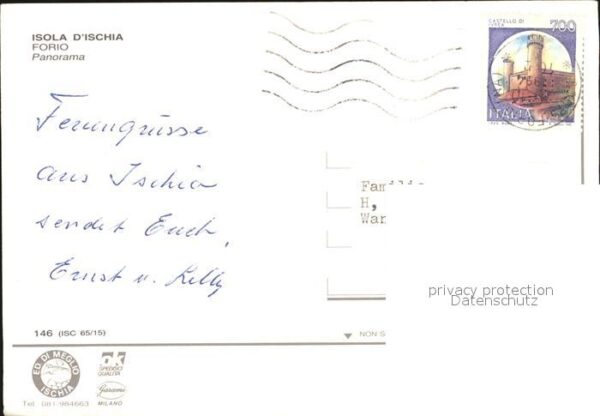 ISOLA D'ISCHIA
FORIO
Panorama
CASTELLO DI
IVREA
700
ITALIA
Feriengrüsse
aus Ischia
sendet Euch,
Ernst u. Kelly
Familie
H,
Wan
privacy protection
Datenschutz
146 (ISC 65/15)
NON S
ED. DI MEGLIO
ISCHIA
OK
SPERDICI
QUALITÀ
Garami
MILANO
Tel. 081-984663